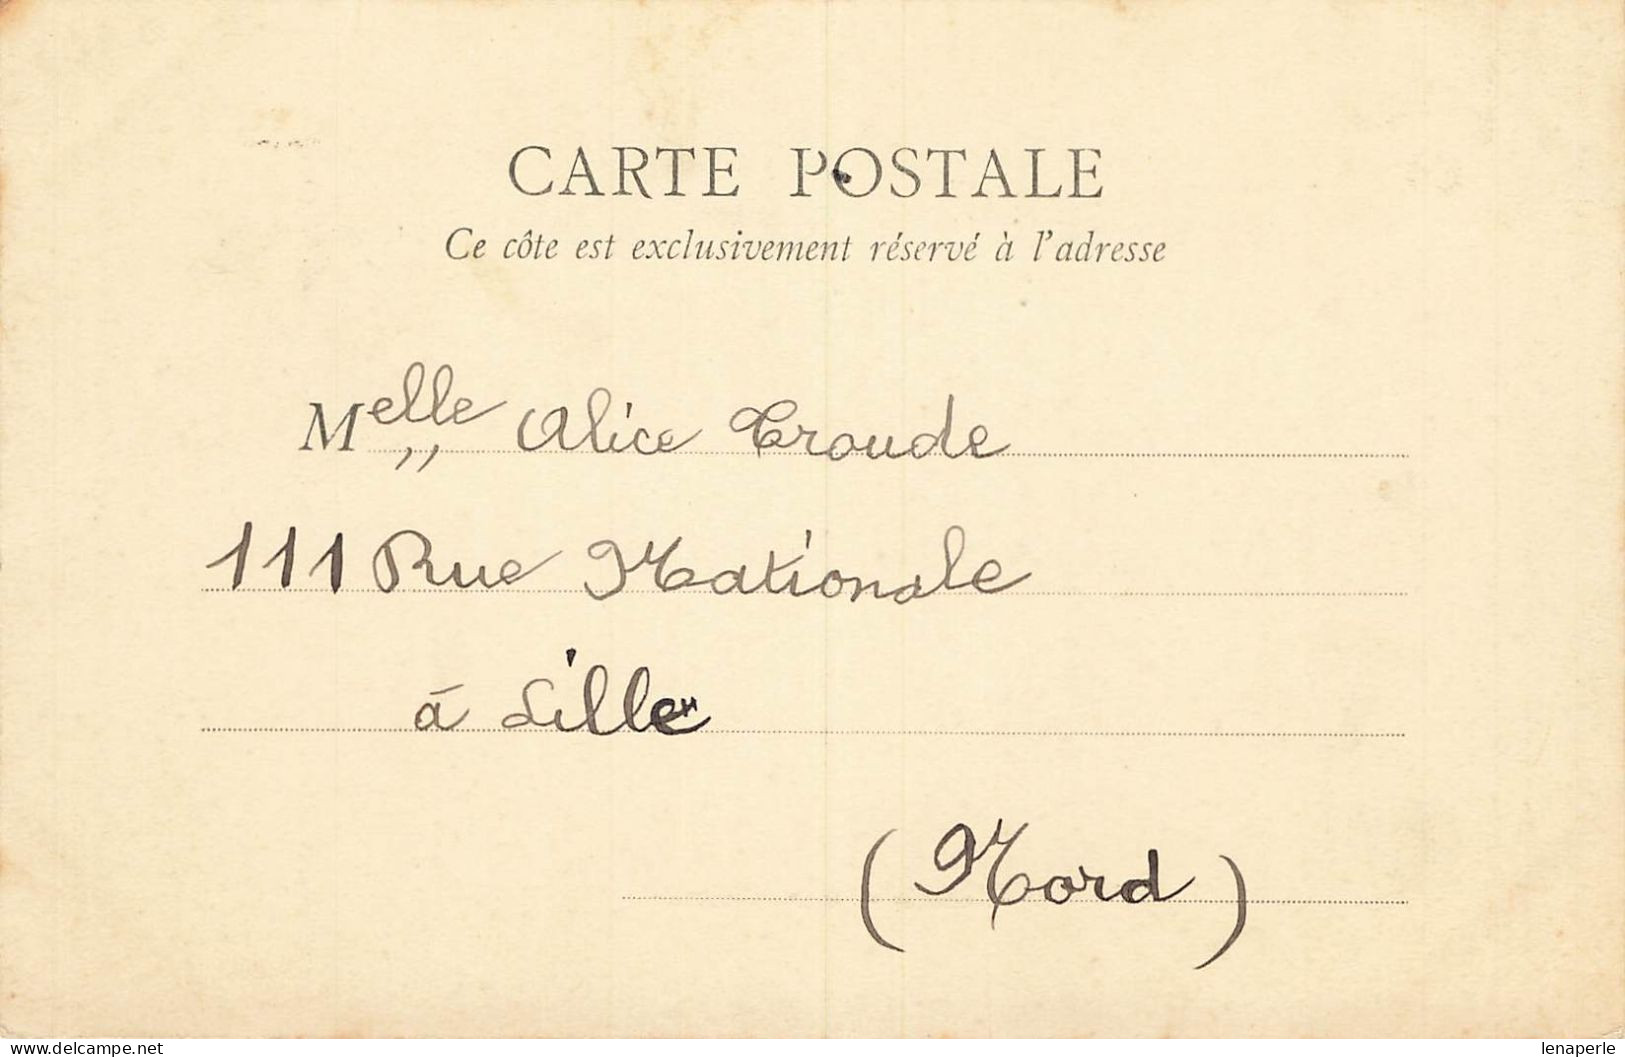 CARTE POSTALE
Ce côte est exclusivement réservé à l'adresse
Melle Alice Troude
111 Rue Nationale
à Lille
(Nord)
www.delcampe.net
lenaperle